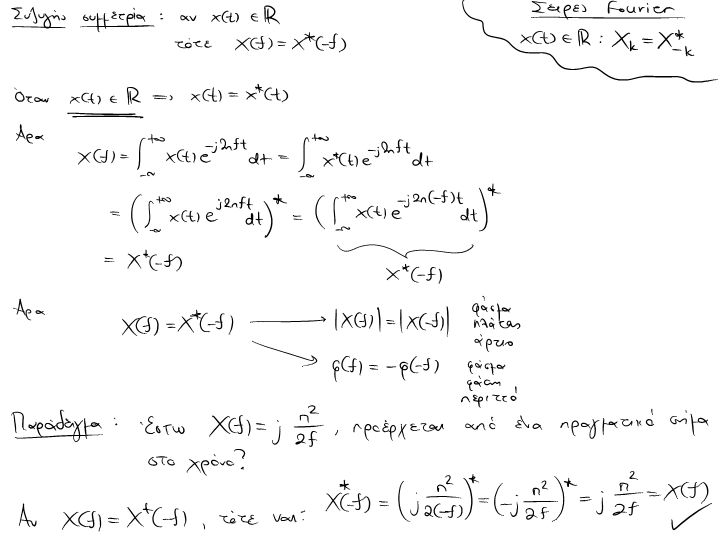 Συζυγής συμμετρία : αν x(t) ∈ ℝ
τότε X(f) = X*(-f)
Σειρές Fourier
x(t) ∈ ℝ : X_k = X*_{-k}
Όταν x(t) ∈ ℝ => x(t) = x*(t)
Άρα
X(f) = ∫_{-∞}^{+∞} x(t) e^{-j2πft} dt = ∫_{-∞}^{+∞} x*(t) e^{-j2πft} dt
= (∫_{-∞}^{+∞} x(t) e^{j2πft} dt)* = (∫_{-∞}^{+∞} x(t) e^{-j2π(-f)t} dt)*
= X*(-f)
X*(-f)
Άρα
X(f) = X*(-f) → |X(f)| = |X(-f)| φάσμα πλάτους άρτιο
→ φ(f) = -φ(-f) φάσμα φάσης περιττό
Παράδειγμα : Έστω X(f) = j π²/2f , προέρχεται από ένα πραγματικό σήμα
στο χρόνο?
Αν X(f) = X*(-f) , τότε ναι: X*(-f) = (j π²/2(-f))* = (-j π²/2f)* = j π²/2f = X(f) ✓